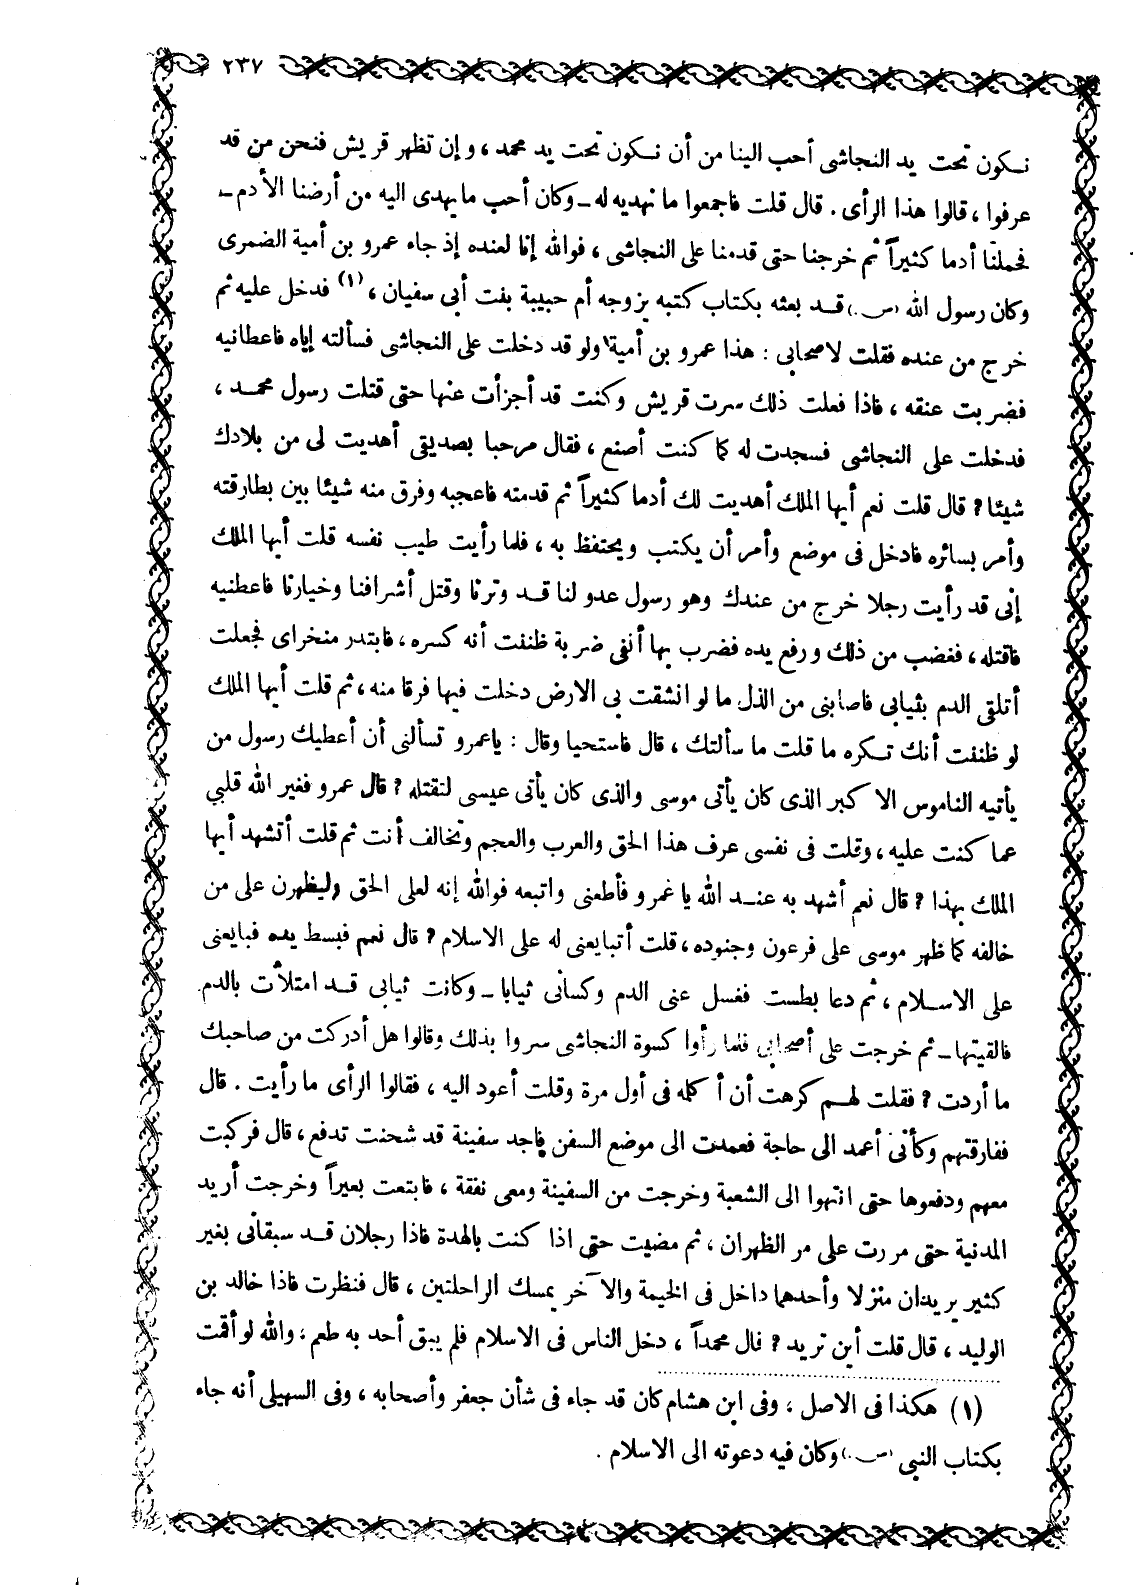 ٢٣٧
نكون تحت يد النجاشى أحب الينا من أن نكون تحت يد محمد ، وإن تظهر قريش فنحن من قد
عرفوا ، قالوا هذا الرأى . قال قلت فاجمعوا ما نهديه له ـ وكان أحب ما يهدى اليه من أرضنا الأدم ـ
فحملنا أدما كثيراً ثم خرجنا حتى قدمنا على النجاشى ، فوالله إنا لعنده إذ جاء عمرو بن أمية الضمرى
وكان رسول الله (ص.) قد بعثه بكتاب كتبه يزوجه أم حبيبة بنت أبى سفيان ، (١) فدخل عليه ثم
خرج من عنده فقلت لاصحابى : هذا عمرو بن أمية ولو قد دخلت على النجاشى فسألته إياه فاعطانيه
فضربت عنقه ، فاذا فعلت ذلك سرت قريش وكنت قد أجزأت عنها حتى قتلت رسول محمد ،
فدخلت على النجاشى فسجدت له كما كنت أصنع ، فقال مرحبا بصديقى أهديت لى من بلادك
شيئا ؟ قال قلت نعم أيها الملك أهديت لك أدما كثيراً ثم قدمته فاعجبه وفرق منه شيئا بين بطارقته
وأمر بسائره فادخل فى موضع وأمر أن يكتب ويحتفظ به ، فلما رأيت طيب نفسه قلت أيها الملك
إنى قد رأيت رجلا خرج من عندك وهو رسول عدو لنا قد وترنا وقتل أشرافنا وخيارنا فاعطنيه
فاقتله ، فغضب من ذلك ورفع يده فضرب بها أنفى ضربة ظننت أنه كسره ، فابتدر منخراى فجعلت
أتلقى الدم بثيابى فاصابنى من الذل ما لو انشقت بى الارض دخلت فيها فرقا منه ، ثم قلت أيها الملك
لو ظننت أنك تكره ما قلت ما سألتك ، قال فاستحيا وقال : ياعمرو تسألنى أن أعطيك رسول من
يأتيه الناموس الاكبر الذى كان يأتى موسى والذى كان يأتى عيسى لتقتله ؟ قال عمرو فغير الله قلبي
عما كنت عليه ، وقلت فى نفسى عرف هذا الحق والعرب والعجم وتخالف أنت ثم قلت أتشهد أيها
الملك بهذا ؟ قال نعم أشهد به عند الله يا عمرو فأطعنى واتبعه فوالله إنه لعلى الحق وليظهرن على من
خالفه كما ظهر موسى على فرعون وجنوده ، قلت أتبايعنى له على الاسلام ؟ قال نعم فبسط يده فبايعنى
على الاسلام ، ثم دعا بطست فغسل عنى الدم وكسانى ثيابا ـ وكانت ثيابى قد امتلأت بالدم
فالقيتها ـ ثم خرجت على أصحابى فلما رأوا كسوة النجاشى سروا بذلك وقالوا هل أدركت من صاحبك
ما أردت ؟ فقلت لهم كرهت أن أكلمه فى أول مرة وقلت أعود اليه ، فقالوا الرأى ما رأيت . قال
ففارقتهم وكأنى أعمد الى حاجة فعمدت الى موضع السفن فاجد سفينة قد شحنت تدفع ، قال فركبت
معهم ودفعوها حتى انتهوا الى الشعبة وخرجت من السفينة ومعى نفقة ، فابتعت بعيراً وخرجت أريد
المدنية حتى مررت على مر الظهران ، ثم مضيت حتى اذا كنت بالهدة فاذا رجلان قد سبقانى بغير
كثير يريدان منزلا وأحدهما داخل فى الخيمة والآخر يمسك الراحلتين ، قال فنظرت فاذا خالد بن
الوليد ، قال قلت أين تريد ؟ قال محمداً ، دخل الناس فى الاسلام فلم يبق أحد به طعم ، والله لو أقمت
(١) هكذا فى الاصل ، وفى ابن هشام كان قد جاء فى شأن جعفر وأصحابه ، وفى السهيلى أنه جاء
بكتاب النبى (ص.) وكان فيه دعوته الى الاسلام .